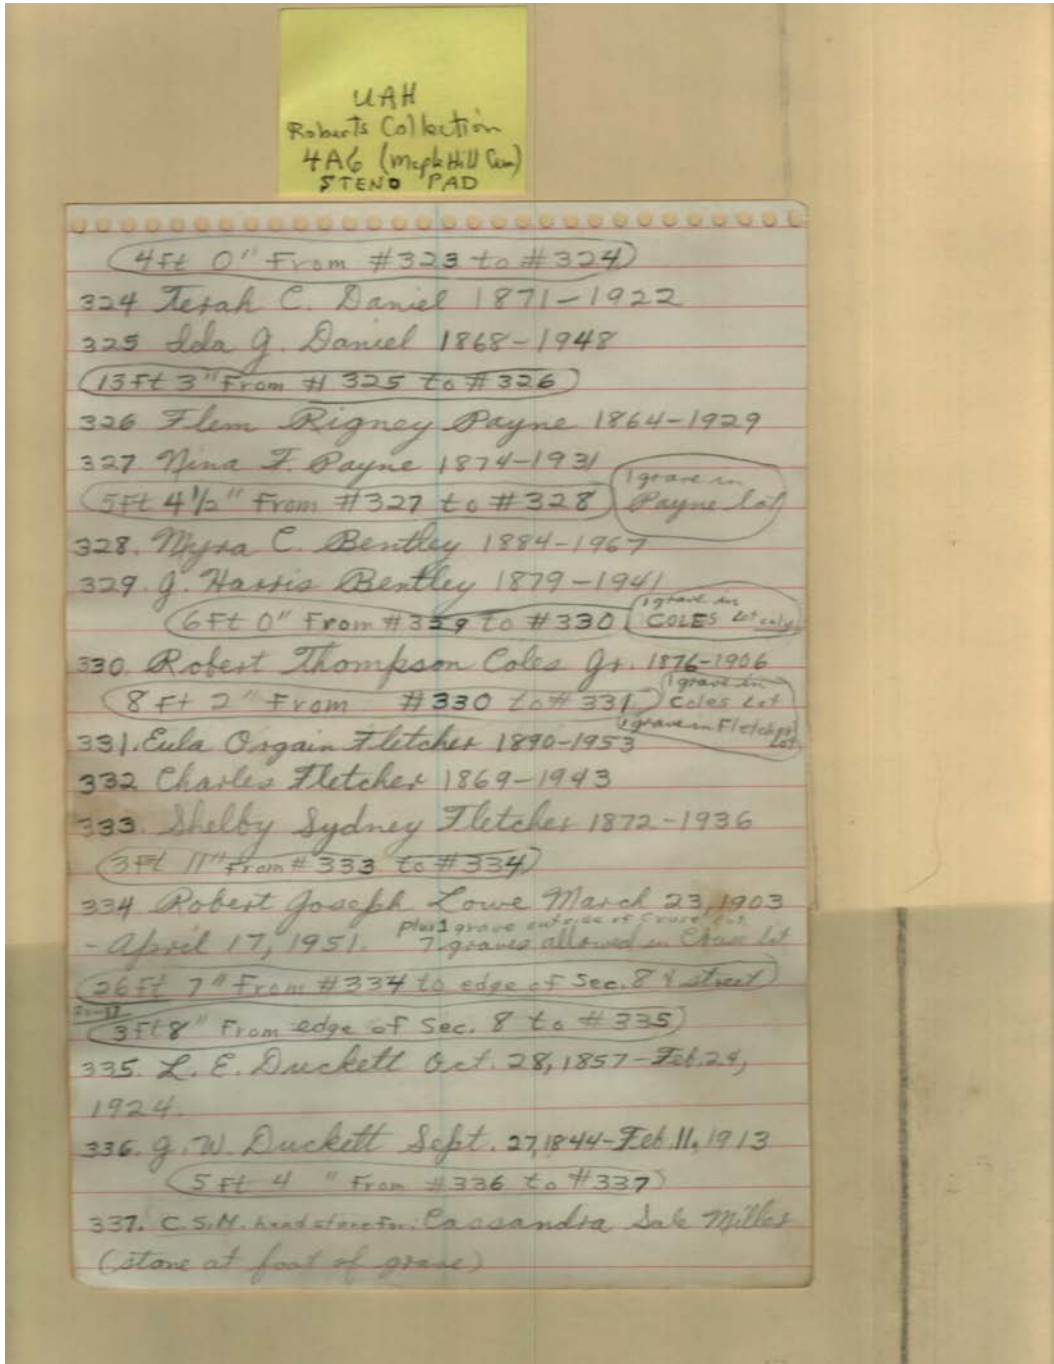 UAH
Roberts Collection
4A6 (Maple Hill Cem)
STENO PAD
4ft 0" From #323 to #324
324 Terah C. Daniel 1871-1922
325 Ida G. Daniel 1868-1948
13ft 3" From # 325 to #326
326 Flem Rigney Payne 1864-1929
327. Nina F. Payne 1874-1931
1 grave in
Payne lot
5ft 4½" From #327 to #328
328. Myra C. Bentley 1884-1967
329. J. Harris Bentley 1879-1941
6ft 0" From #329 to #330
1 grave in
COLES Lot only
330. Robert Thompson Coles Jr. 1876-1906
8ft 2" From #330 to #331
1 grave in
Coles Lot
1 grave in Fletcher
Lot
331. Eula Orgain Fletcher 1890-1953
332 Charles Fletcher 1869-1943
333. Shelby Sydney Fletcher 1872-1936
3ft 11" From #333 to #334
334 Robert Joseph Lowe March 23, 1903
plus 1 grave outside of Cruse Lot.
- April 17, 1951. 7 graves allowed in lot
26ft 7" From #334 to edge of Sec. 8 & street
3ft 8" From edge of Sec. 8 to #335
335. L. E. Duckett Oct. 28, 1857-Feb. 24,
1924.
336. G. W. Duckett Sept. 27, 1844-Feb. 11, 1913
5ft 4 " From #336 to #337
337. C.S.M. headstone for: Cassandra Sale Miller
(stone at foot of grave)